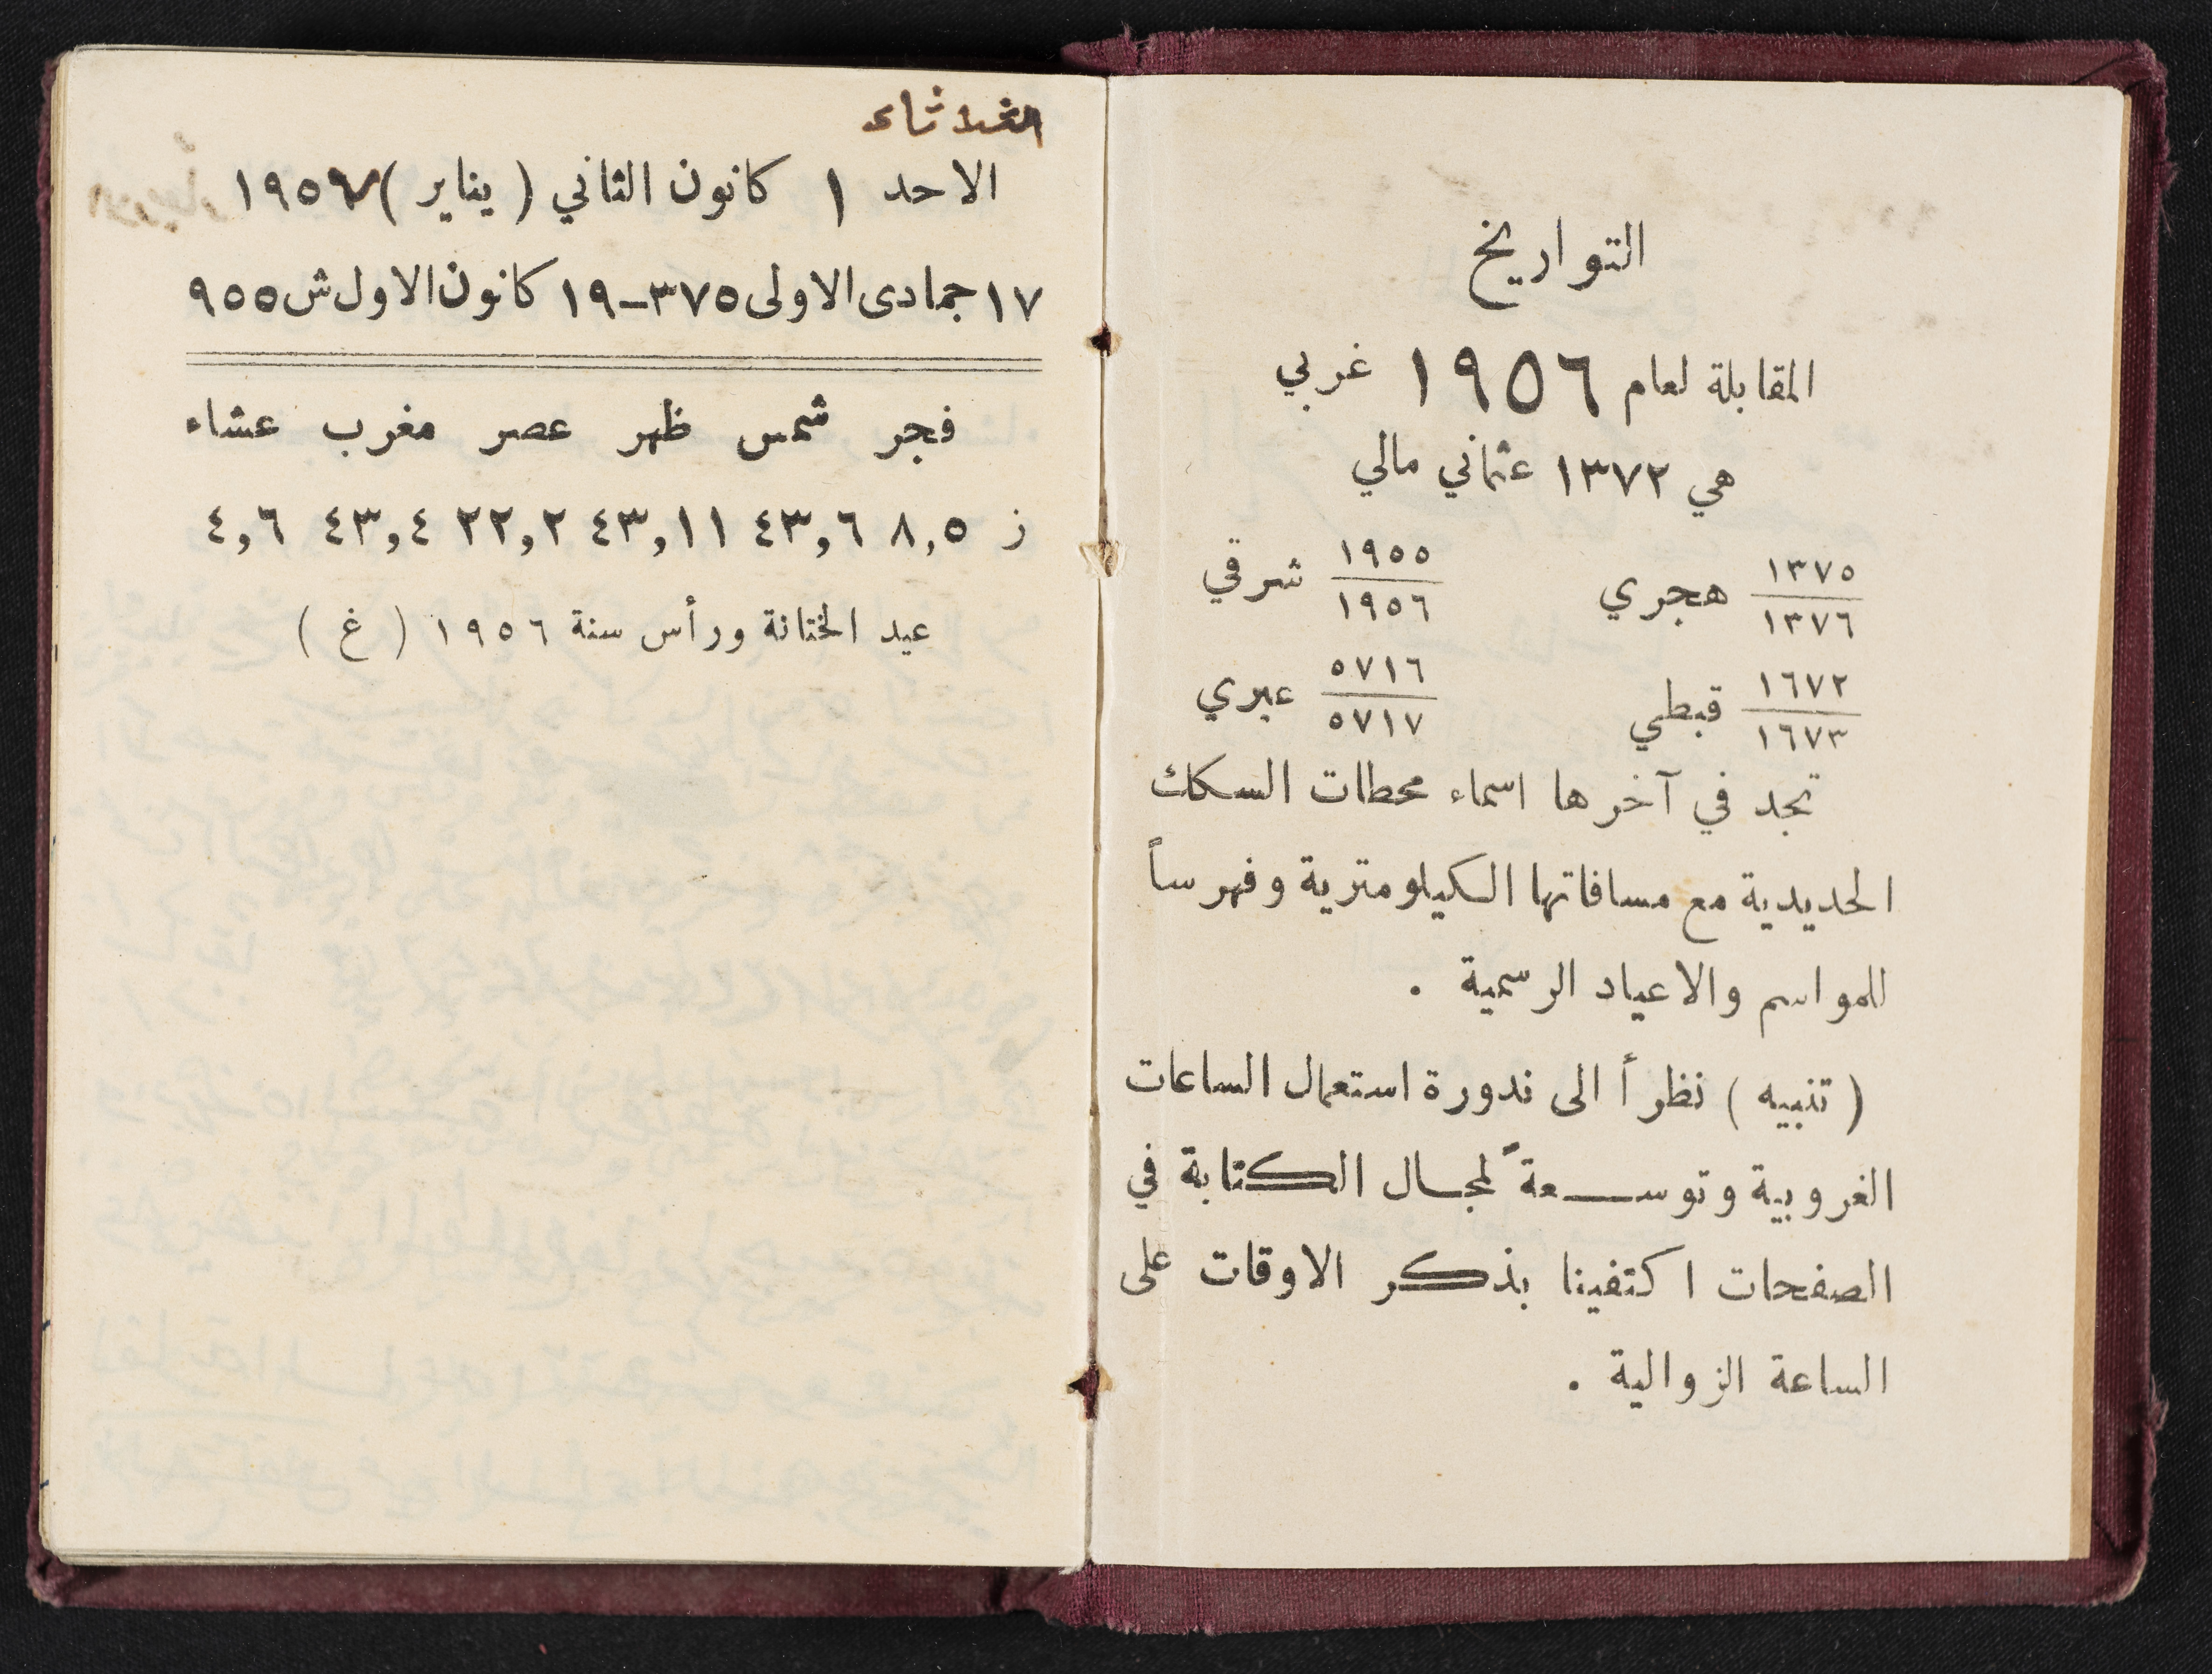 التواريخ
المقابلة لعام ١٩٥٦ غربي
هي ١٣٧٢ عثماني مالي
١٣٧٥ / ١٣٧٦ هجري ١٩٥٥ / ١٩٥٦ شرقي
١٦٧٢ / ١٦٧٣ قبطي ٥٧١٦ / ٥٧١٧ عبري
تجد في آخرها اسماء محطات السكك
الحديدية مع مسافاتها الكيلومترية وفهرساً
للمواسم والاعياد الرسمية .
( تنبيه ) نظراً الى ندورة استعمال الساعات
الغروبية وتوسعةً لمجال الكتابة في
الصفحات اكتفينا بذكر الاوقات على
الساعة الزوالية .
الثلاثاء
الاحد ١ كانون الثاني ( يناير ) ١٩٥٧
١٧ جمادى الاولى ٣٧٥-١٩ كانون الاول ش ٩٥٥
فجر شمس ظهر عصر مغرب عشاء
ز ٨,٥ ٤٣,٦ ٤٣,١١ ٢٢,٢ ٤٣,٤ ٤,٦
عيد الختانة ورأس سنة ١٩٥٦ ( غ )